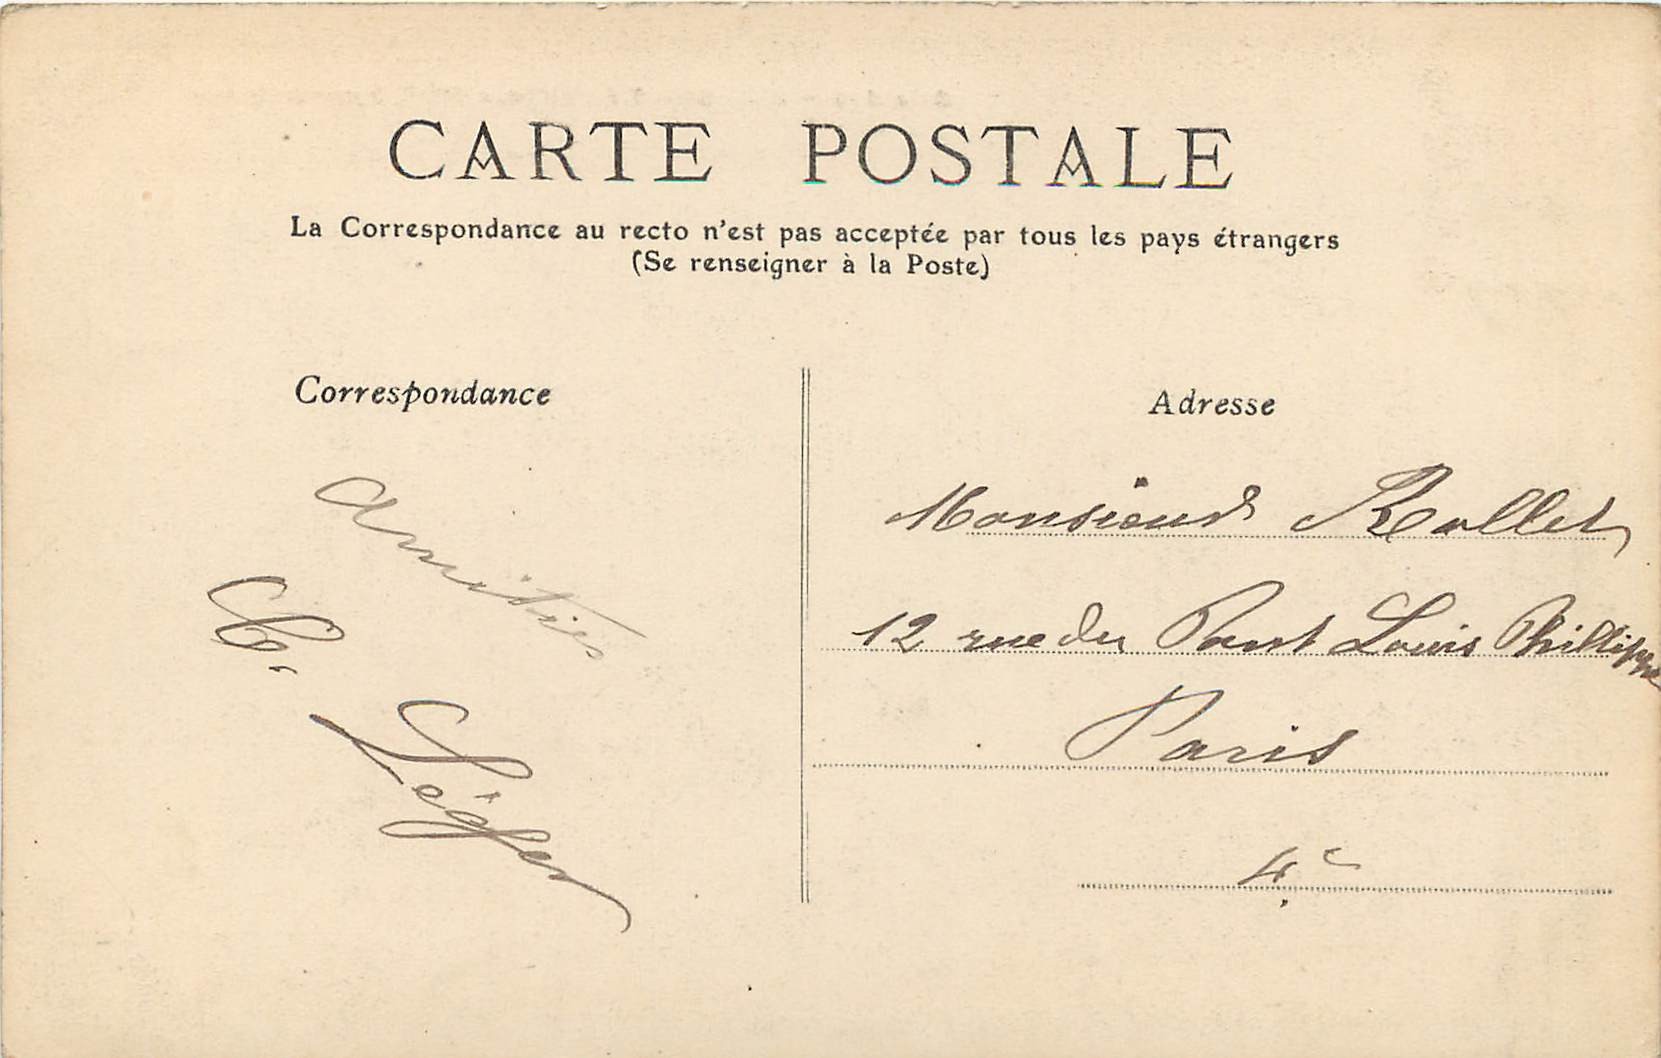 CARTE POSTALE
La Correspondance au recto n'est pas acceptée par tous les pays étrangers
(Se renseigner à la Poste)
Correspondance
Amitiés
Léger
Adresse
Monsieur Rollet
12 rue du Pont Louis Phillippe
Paris
4e